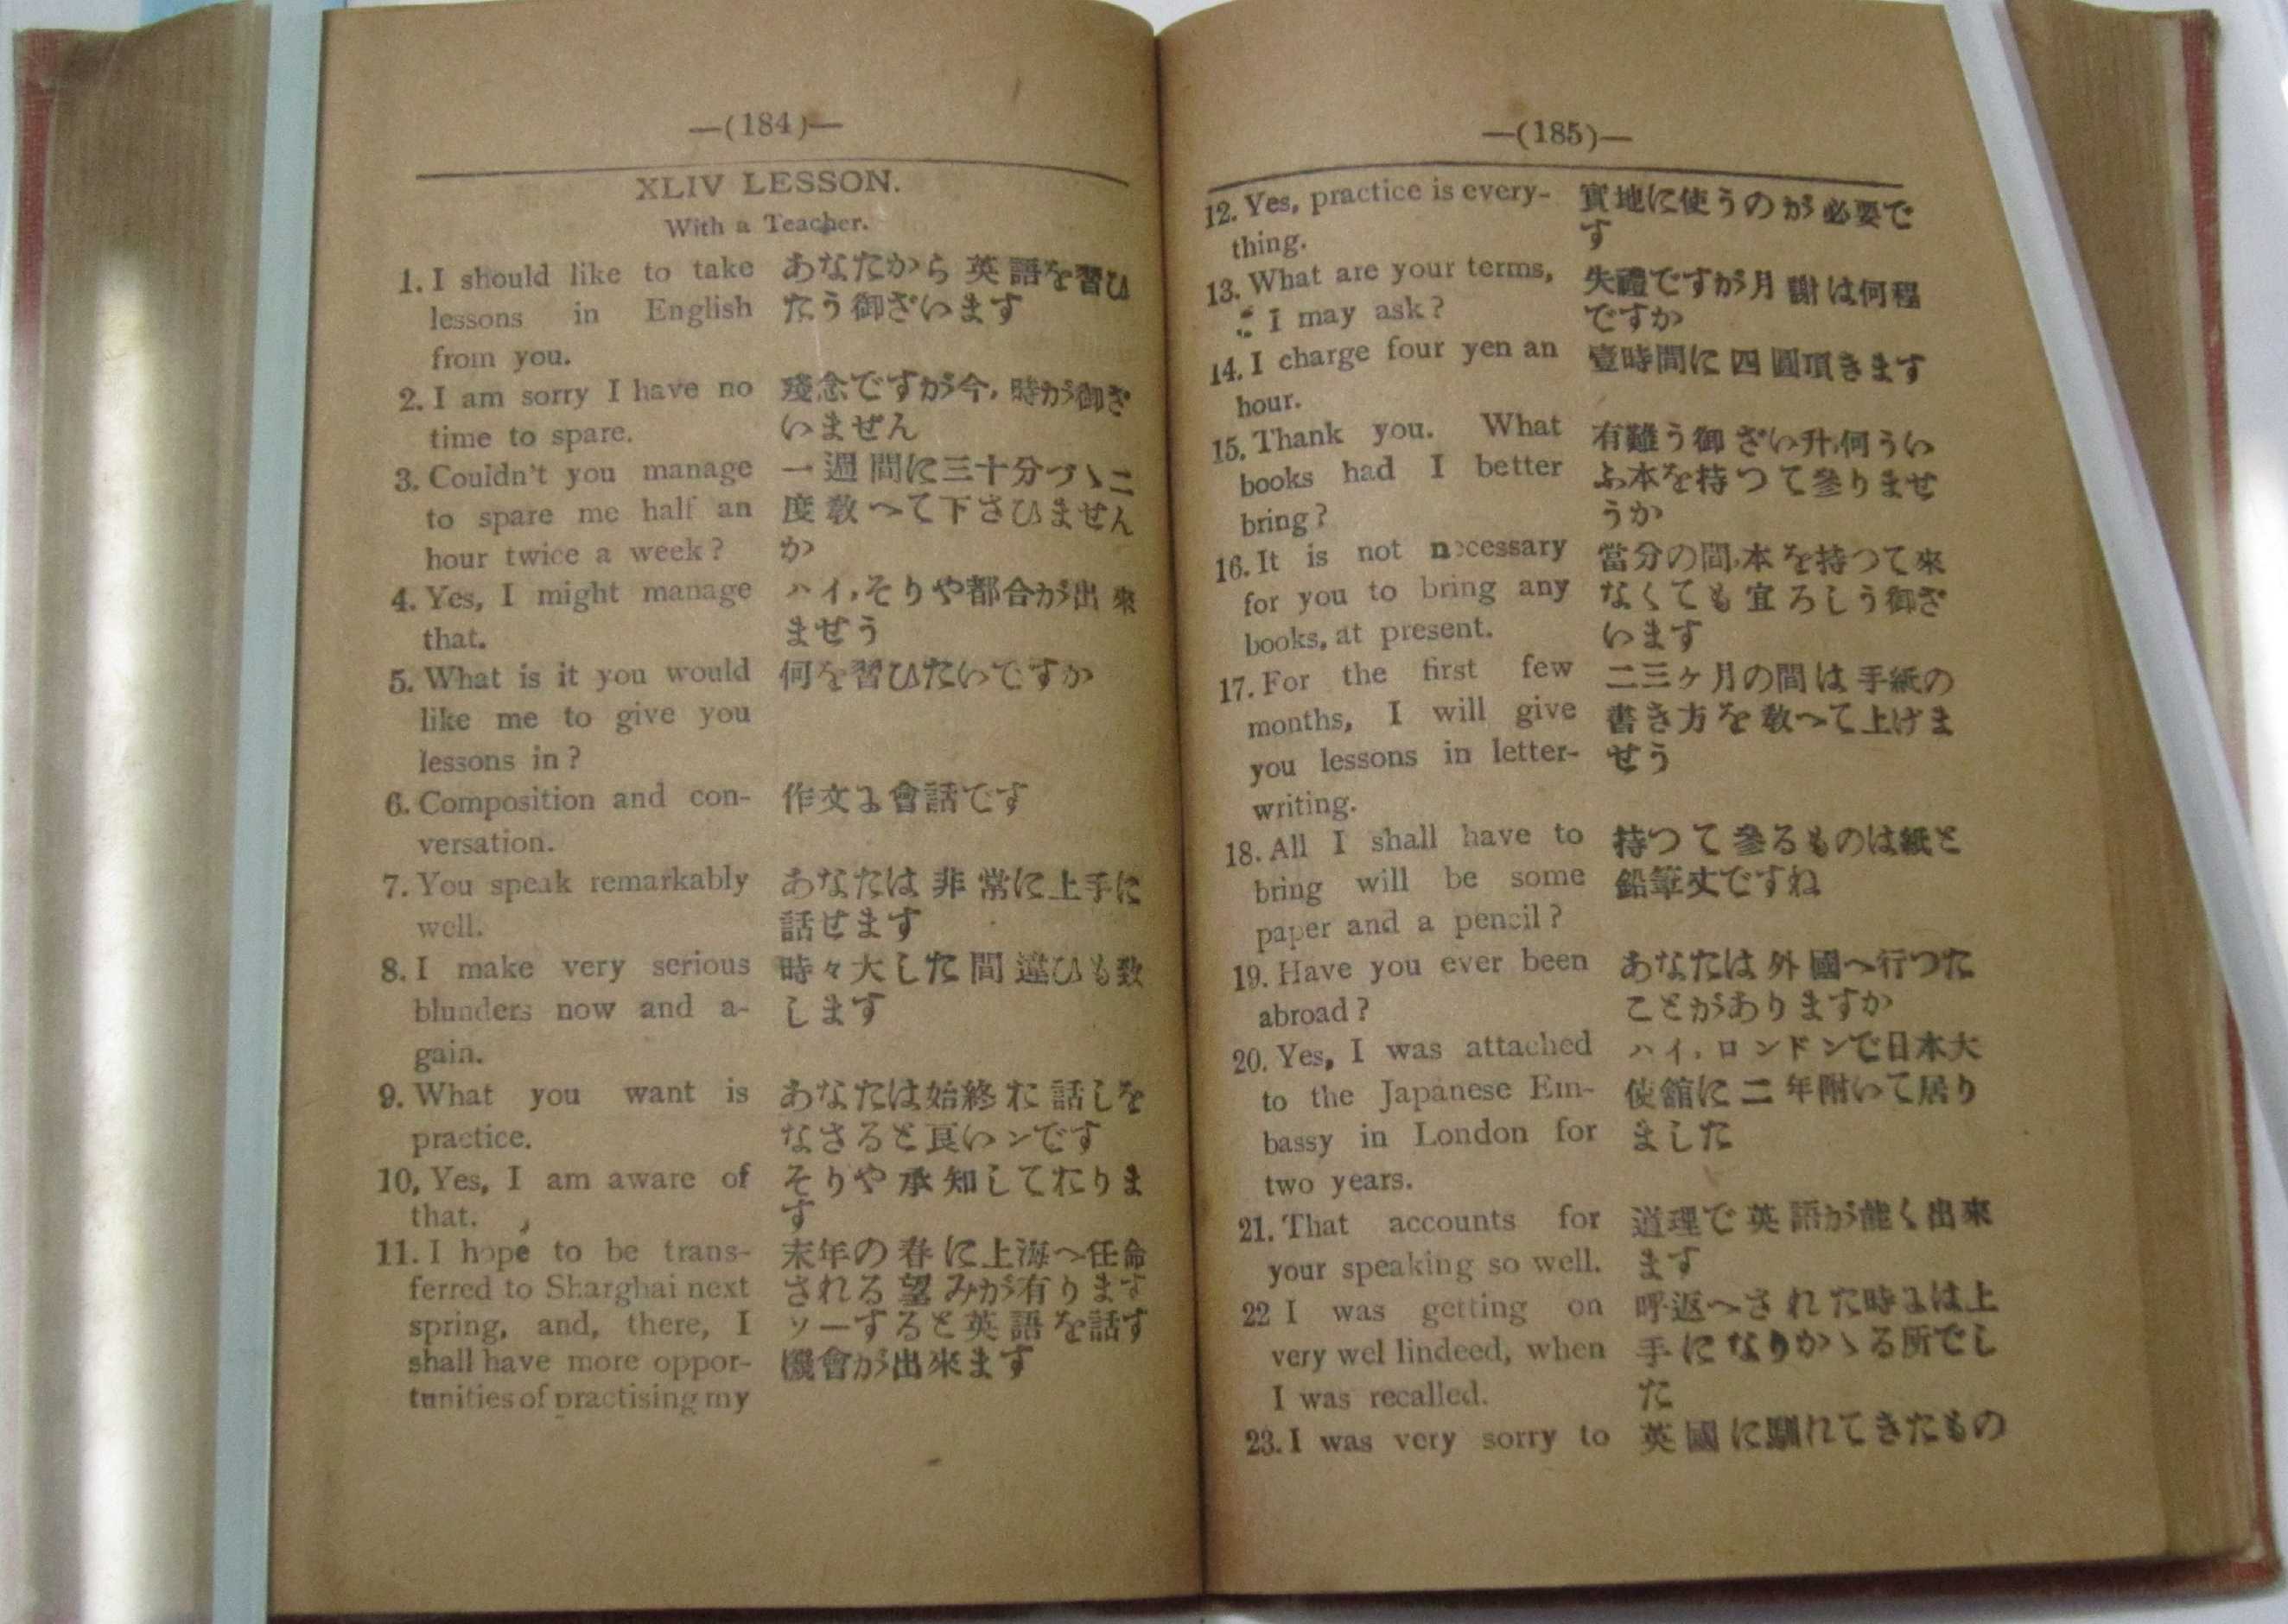 —(184)—
XLIV LESSON.
With a Teacher.
1. I should like to take
lessons in English
from you.
あなたから英語を習ひ
たう御ざいます
2. I am sorry I have no
time to spare.
殘念ですが今,時が御ざ
いません
3. Couldn't you manage
to spare me half an
hour twice a week?
一週間に三十分づゝ二
度敎へて下さひません
か
4. Yes, I might manage
that.
ハイ,そりや都合が出來
ませう
5. What is it you would
like me to give you
lessons in?
何を習ひたいですか
6. Composition and con-
versation.
作文と會話です
7. You speak remarkably
well.
あなたは非常に上手に
話せます
8. I make very serious
blunders now and a-
gain.
時々大した間違ひも致
します
9. What you want is
practice.
あなたは始終お話しを
なさると良いンです
10, Yes, I am aware of
that.
そりや承知しておりま
す
11. I hope to be trans-
ferred to Sharghai next
spring, and, there, I
shall have more oppor-
tunities of practising my
末年の春に上海へ任命
される望みが有ります
ソーすると英語を話す
機會が出來ます
—(185)—
12. Yes, practice is every-
thing.
實地に使うのが必要で
す
13. What are your terms,
I may ask?
失禮ですが月謝は何程
ですか
14. I charge four yen an
hour.
壹時間に四圓頂きます
15. Thank you. What
books had I better
bring?
有難う御ざい升,何うい
ふ本を持つて參りませ
うか
16. It is not necessary
for you to bring any
books, at present.
當分の間,本を持つて來
なくても宜ろしう御ざ
います
17. For the first few
months, I will give
you lessons in letter-
writing.
二三ヶ月の間は手紙の
書き方を敎へて上げま
せう
18. All I shall have to
bring will be some
paper and a pencil?
持つて參るものは紙と
鉛筆丈ですね
19. Have you ever been
abroad?
あなたは外國へ行つた
ことがありますか
20. Yes, I was attached
to the Japanese Em-
bassy in London for
two years.
ハイ,ロンドンで日本大
使館に二年附いて居り
ました
21. That accounts for
your speaking so well.
道理で英語が能く出來
ます
22 I was getting on
very wel lindeed, when
I was recalled.
呼返へされた時は上
手になりかゝる所でし
た
23. I was very sorry to
英國に馴れてきたもの